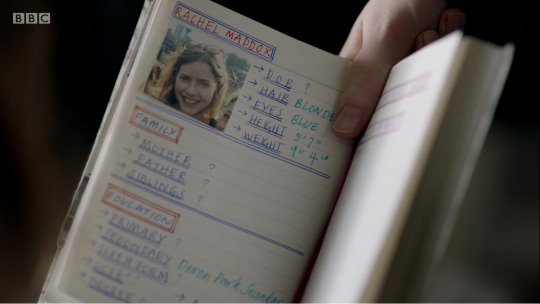 BBC
RACHEL MADDOX
→ D.O.B ?
→ HAIR BLONDE
→ EYES BLUE
→ HEIGHT 5'7"
→ WEIGHT 9st 4lb
FAMILY
→ MOTHER ?
→ FATHER ?
→ SIBLINGS ?
EDUCATION
→ PRIMARY ?
→ SECONDARY ?
→ SIXTH FORM ? Devon Park
→ DEGREE